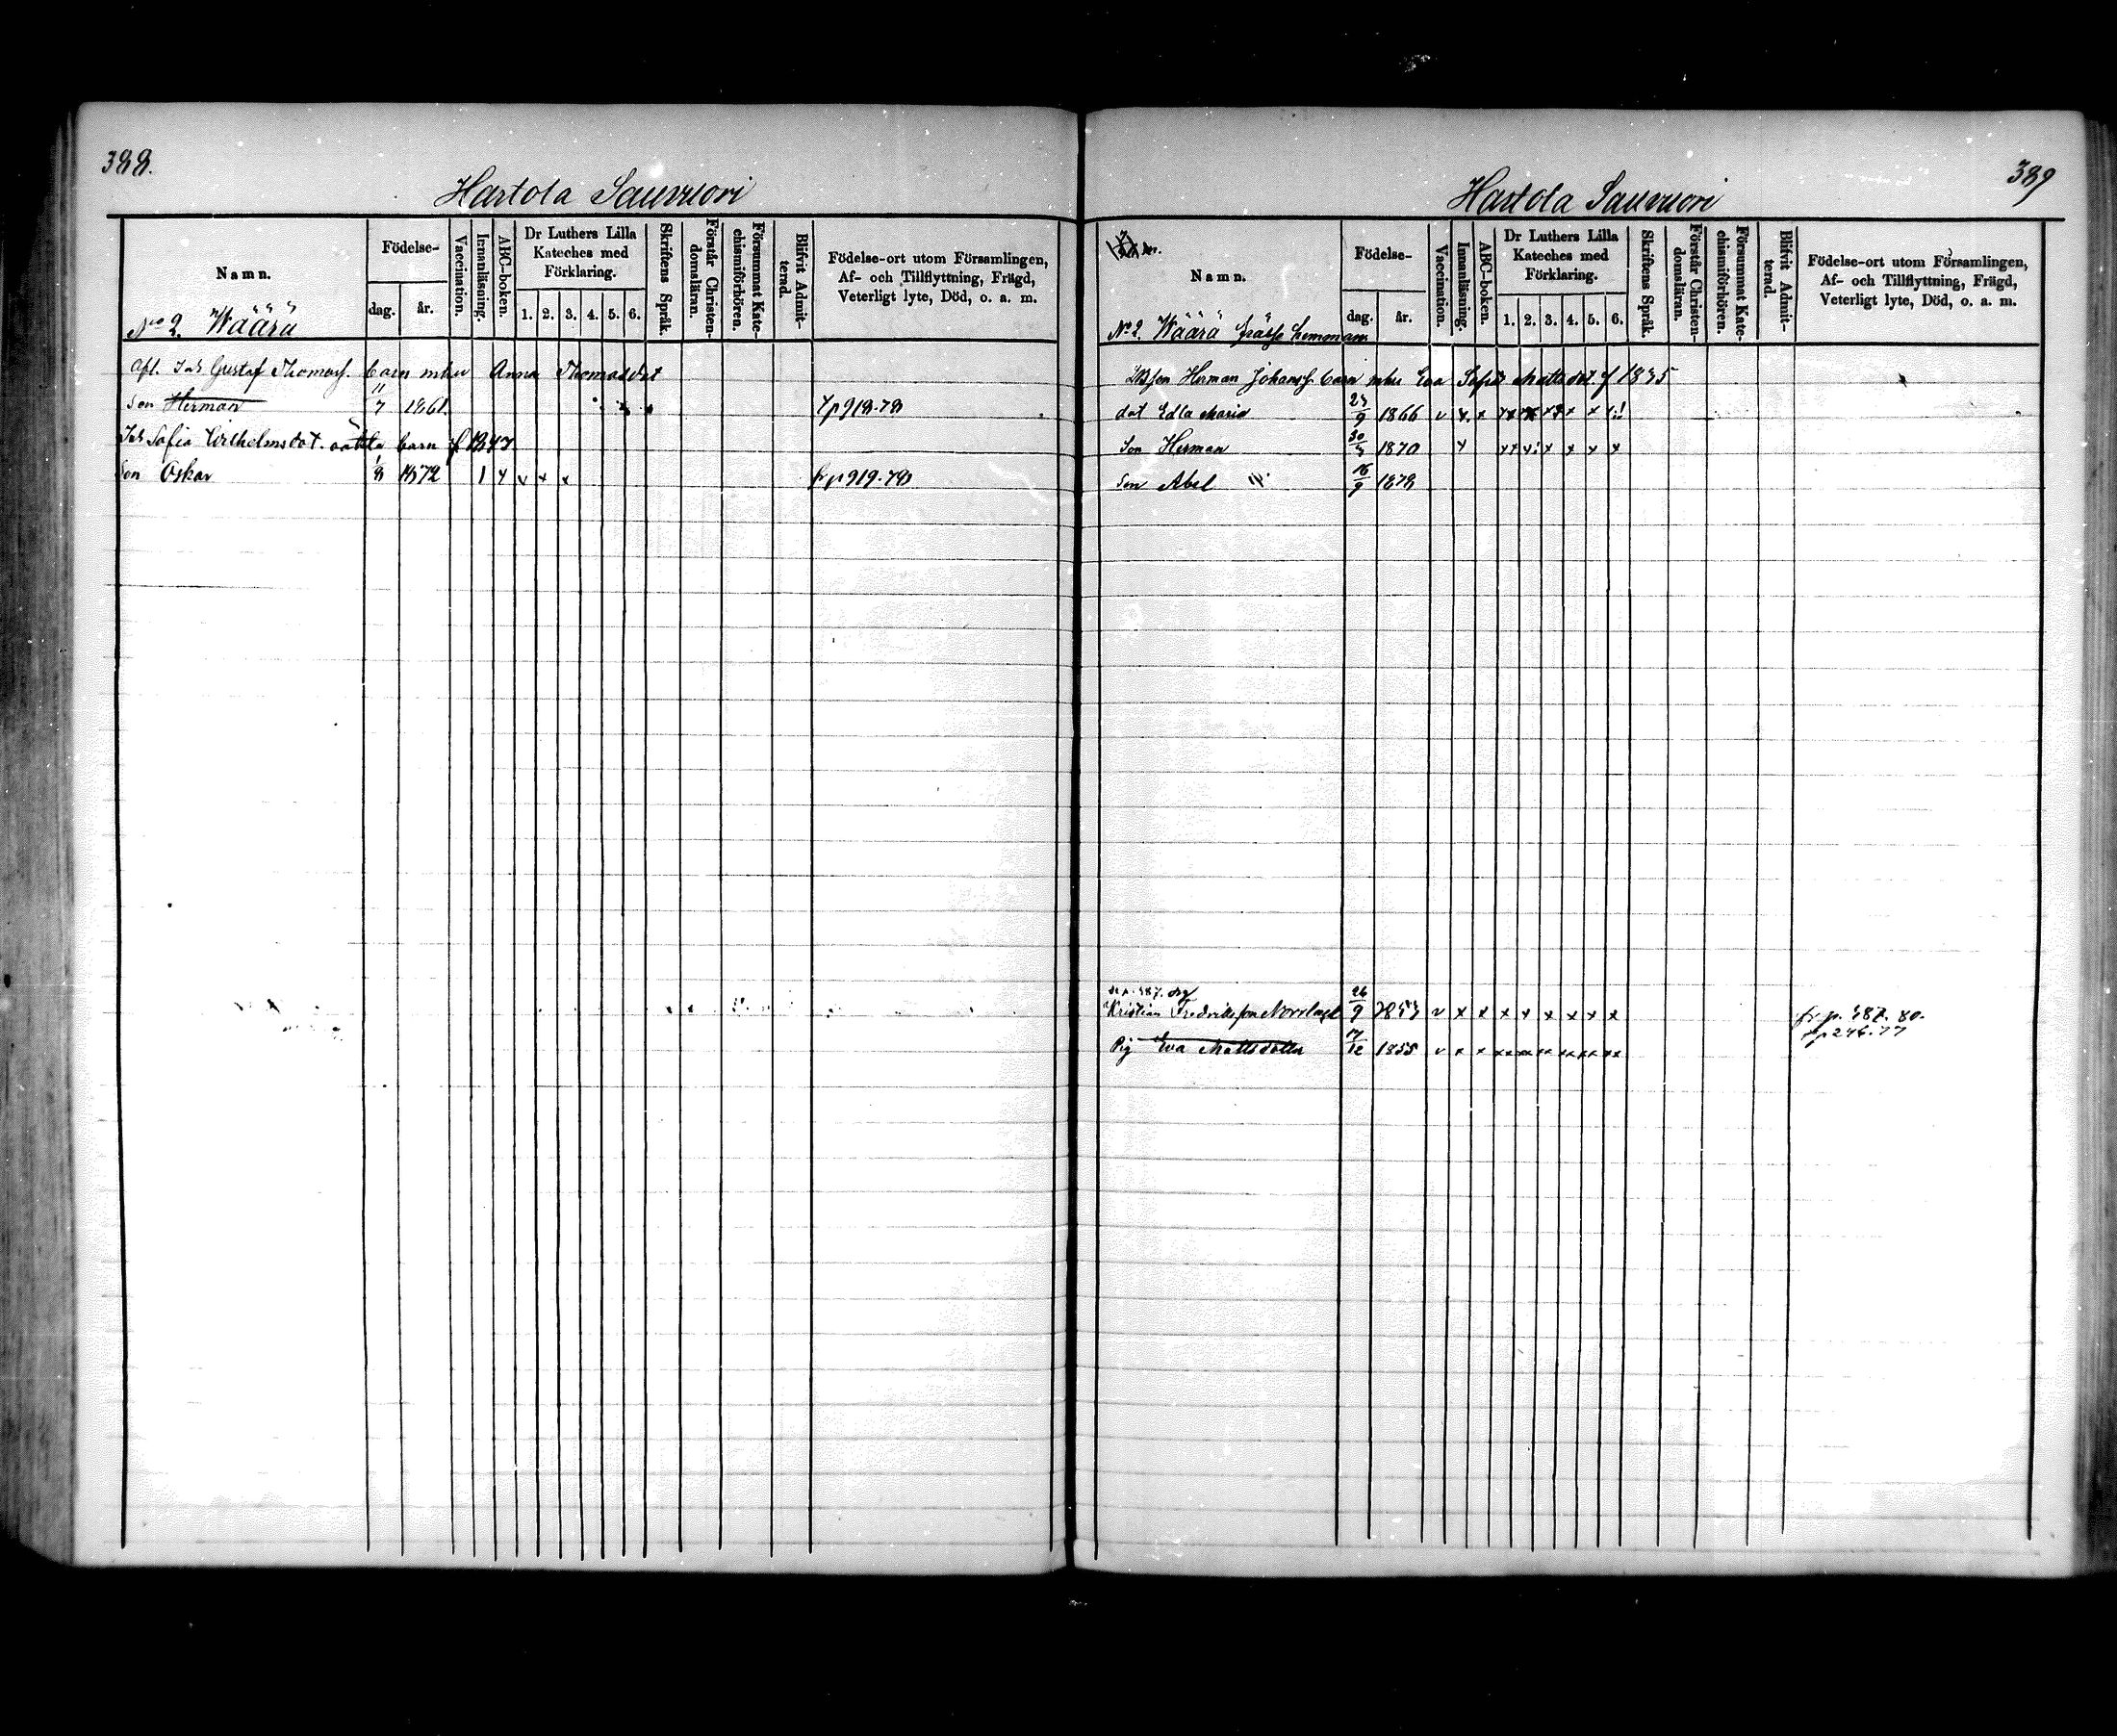 388.
Hartola Sauvuori
Namn.
Födelse-
dag.
år.
Vaccination.
Innanläsning.
ABC-boken.
Dr Luthers Lilla
Kateches med
Förklaring.
1. 2. 3. 4. 5. 6.
Skriftens Språk.
Förstår Christen-
domsläran.
Försummat Kate-
chismiförhören.
Blifvit Admit-
terad.
Födelse-ort utom Församlingen,
Af- och Tillflyttning, Frägd,
Veterligt lyte, Död, o. a. m.
No 2. Wäärä
Afl. Inh Gustaf Thomass. barn mhu Anna Thomasdot
Son Herman 11/7 1861
p 918.78
Inh Sofia Wilhelmsdot. barn f 1847
Son Oskar 1/8 1872
fr p 919.78
389
Hartola Sauvuori
Namn.
Födelse-
dag.
år.
Vaccination.
Innanläsning.
ABC-boken.
Dr Luthers Lilla
Kateches med
Förklaring.
1. 2. 3. 4. 5. 6.
Skriftens Språk.
Förstår Christen-
domsläran.
Försummat Kate-
chismiförhören.
Blifvit Admit-
terad.
Födelse-ort utom Församlingen,
Af- och Tillflyttning, Frägd,
Veterligt lyte, Död, o. a. m.
No 2. Wäärä hemman
Herman Johanss. barn mhu Eva Sofia Mattsdot. f 1835
dot Edla Maria 1866 v x x
Son Herman 1870
Son Abel 16/9 1878
Kristian Fredriksson 26/9 v x x x x x x x x
fr p. 387. 80.
p 246.77
Pig Eva Mattsdotter 17/12 1855 v x x xx xx xx xx xx xx